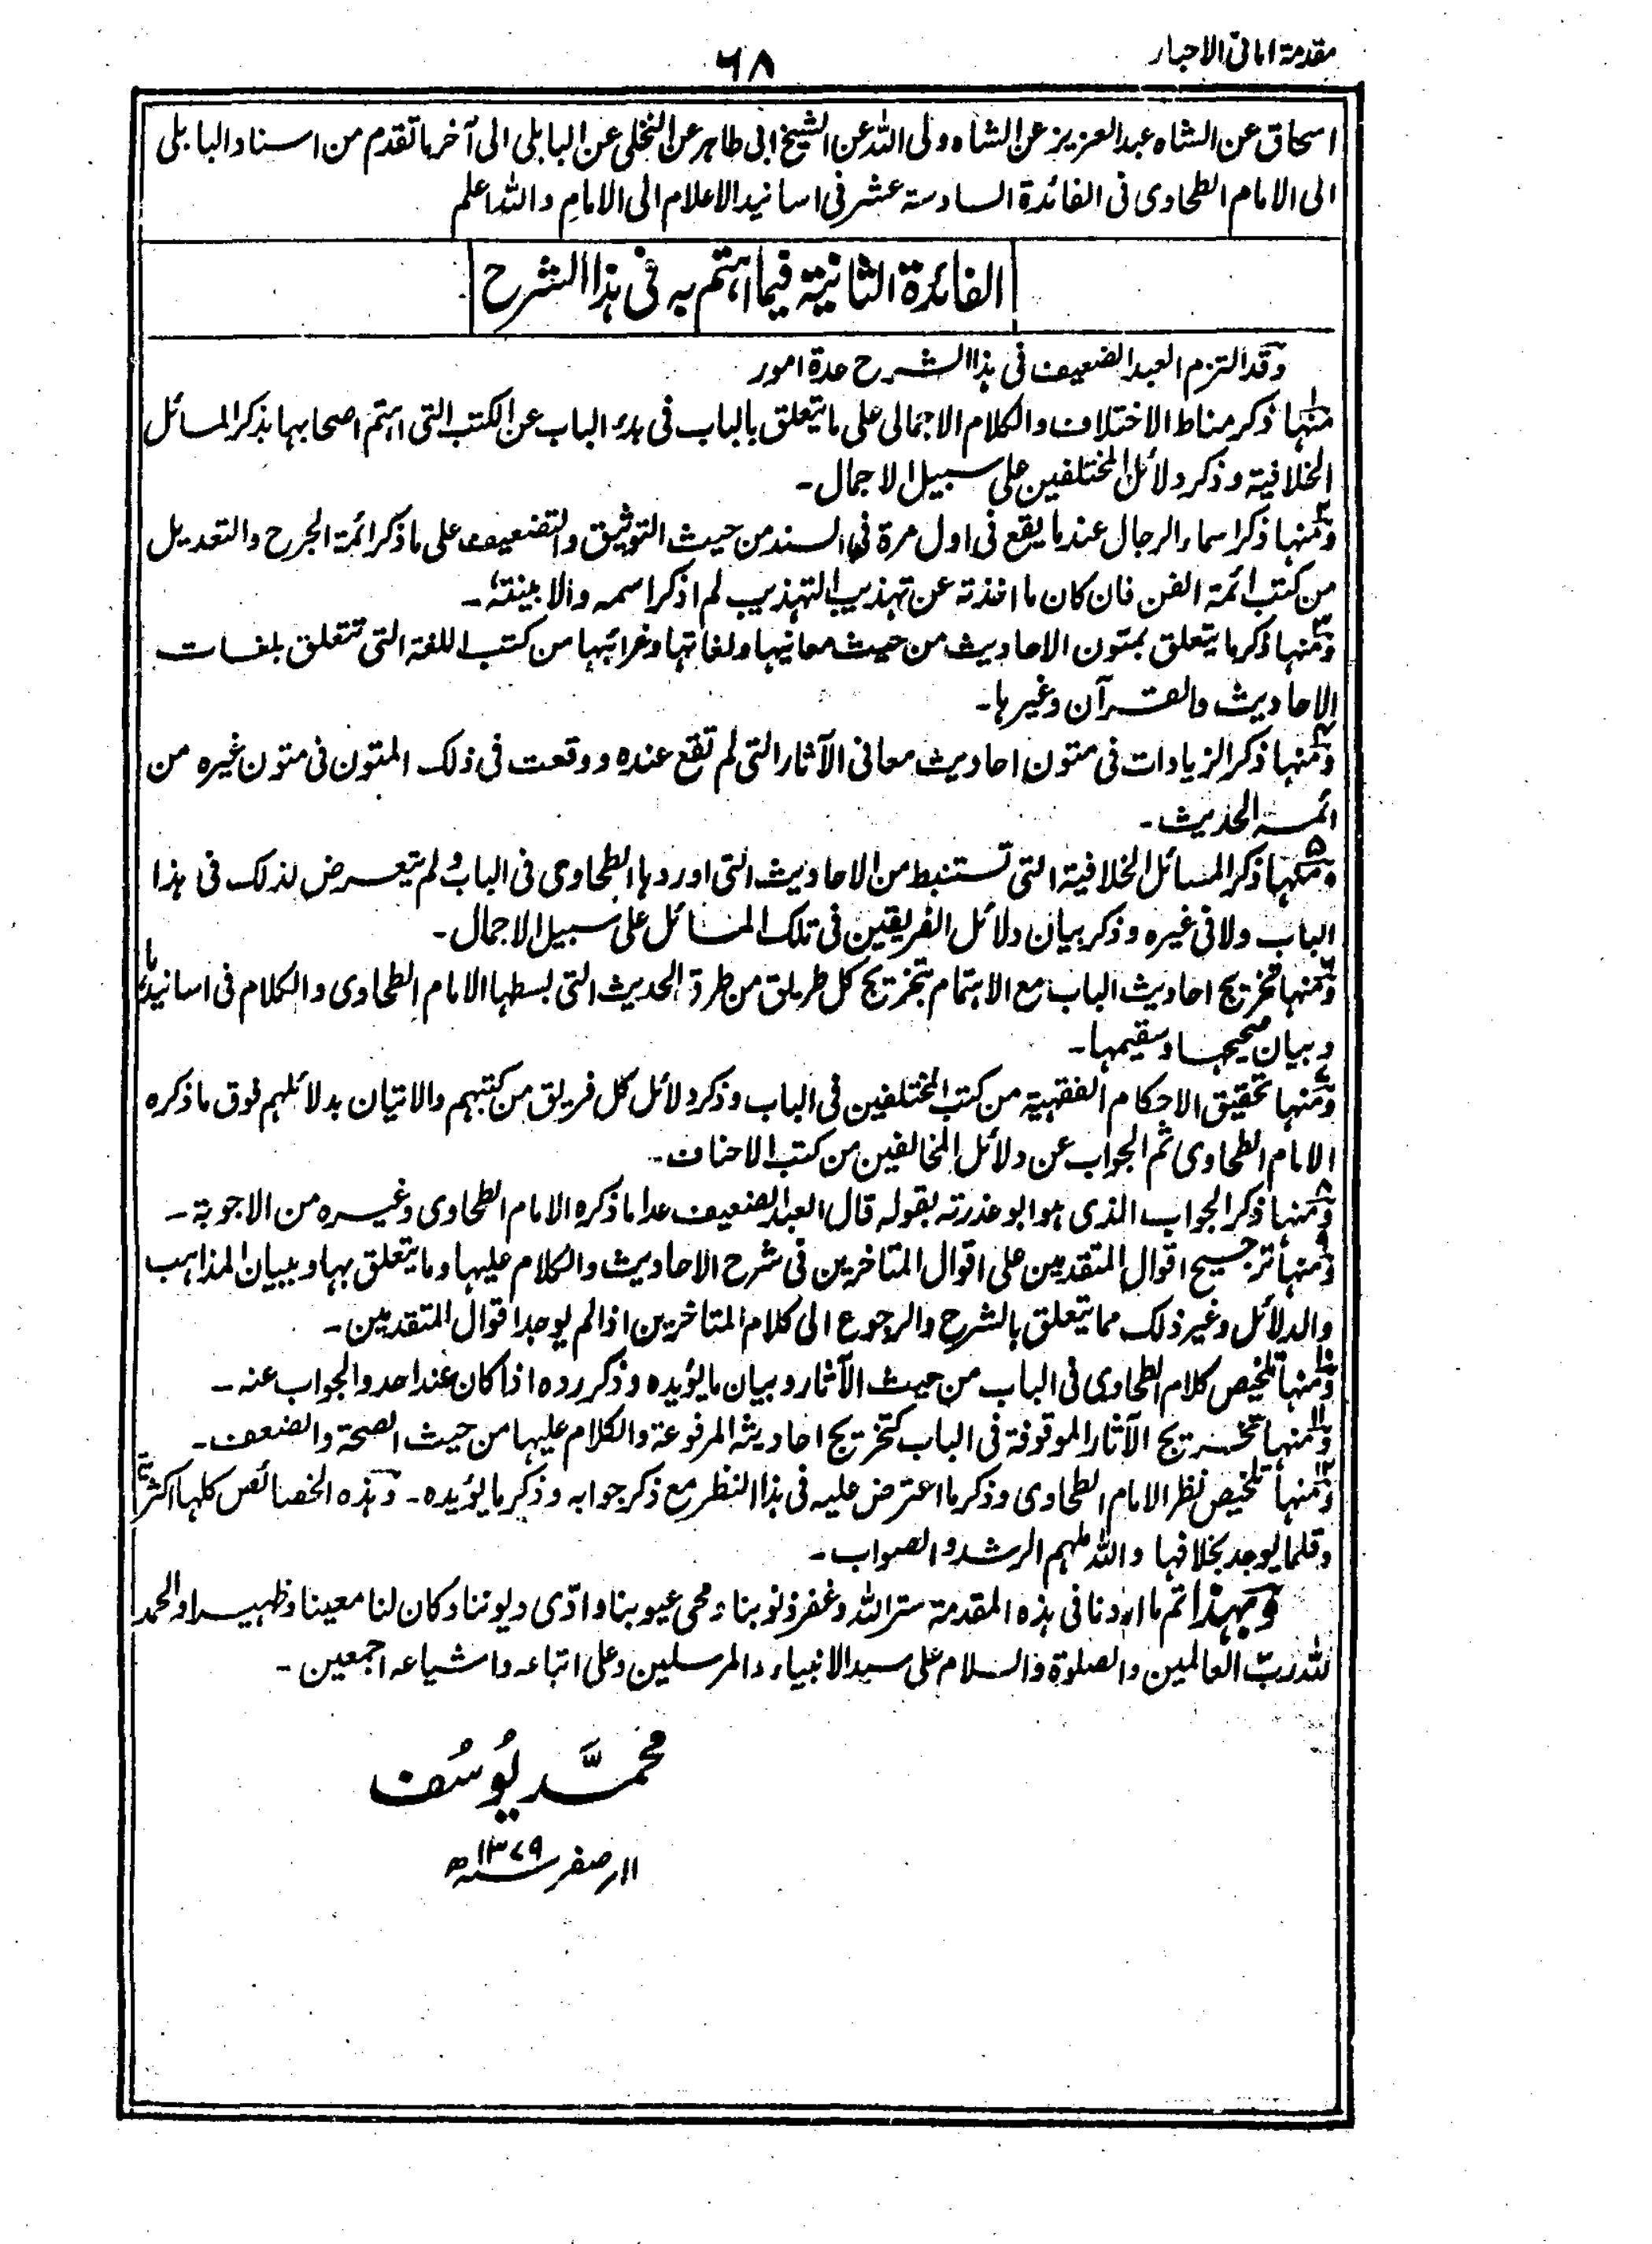 مقدمة امانی الاحبار
٦٨
اسحاق عن الشاه عبدالعزیز عن الشاه ولی الله عن الشیخ ابی طاہر عن النخلی عن البابلی الی آخر ما تقدم من اسناد البابلی
الی الامام الطحاوی فی الفائدة السادسة عشر فی اسانید الاعلام الی الامام والله اعلم
الفائدة الثانیة فیما اہتم به فی ہذا الشرح
وقد التزم العبد الضعیف فی ہذا الشرح عدة امور
١ منہا ذکر مناط الاختلاف والکلام الاجمالی علی ما یتعلق بالباب فی بدء الباب عن الکتب التی اہتم اصحابہا بذکر المسائل
الخلافیة وذکر دلائل المختلفین علی سبیل الاجمال۔
٢ ومنہا ذکر اسماء الرجال عند ما یقع فی اول مرة فی السند من حیث التوثیق والتضعیف علی ما ذکر ائمة الجرح والتعدیل
من کتب ائمة الفن فان کان ما اخذته عن تہذیب التہذیب لم اذکر اسمه والا بینته۔
٣ ومنہا ذکر ما یتعلق بمتون الاحادیث من حیث معانیہا ولغاتہا وغرائبہا من کتب اللغة التی تتعلق بلغات
الاحادیث والقرآن وغیرہا۔
٤ ومنہا ذکر الزیادات فی متون احادیث معانی الآثار التی لم تقع عنده ووقعت فی ذلک المتون فی متون غیره من
ائمة الحدیث۔
٥ ومنہا ذکر المسائل الخلافیة التی تستنبط من الاحادیث التی اوردہا الطحاوی فی الباب ولم یتعرض لذلک فی ہذا
الباب ولا فی غیره وذکر بیان دلائل الفریقین فی تلک المسائل علی سبیل الاجمال۔
٦ ومنہا تخریج احادیث الباب مع الاہتمام بتخریج کل طریق من طرق الحدیث التی بسطہا الامام الطحاوی والکلام فی اسانیدہا
وبیان صحیحہا وسقیمہا۔
٧ ومنہا تحقیق الاحکام الفقہیة من کتب المختلفین فی الباب وذکر دلائل کل فریق من کتبہم والاتیان بدلائلہم فوق ما ذکره
الامام الطحاوی ثم الجواب عن دلائل المخالفین من کتب الاحناف۔
٨ ومنہا ذکر الجواب الذی ہو ابو عذرته بقوله قال العبد الضعیف عدا ما ذکره الامام الطحاوی وغیره من الاجوبة۔
٩ ومنہا ترجیح اقوال المتقدمین علی اقوال المتاخرین فی شرح الاحادیث والکلام علیہا وما یتعلق بہا وببیان المذاہب
والدلائل وغیر ذلک مما یتعلق بالشرح والرجوع الی کلام المتاخرین اذا لم یوجد اقوال المتقدمین۔
١٠ ومنہا تلخیص کلام الطحاوی فی الباب من حیث الآثار وبیان ما یؤیده وذکر رده اذا کان عند احد والجواب عنه۔
١١ ومنہا تخریج الآثار الموقوفة فی الباب کتخریج احادیثه المرفوعة والکلام علیہا من حیث الصحة والضعف۔
١٢ ومنہا تلخیص نظر الامام الطحاوی وذکر ما اعترض علیه فی ہذا النظر مع ذکر جوابه وذکر ما یؤیده۔ وہذه الخصائص کلہا اکثریة
وقلما یوجد بخلافہا والله ملہم الرشد والصواب۔
وبہذا تم ما اردنا فی ہذه المقدمة ستر الله وغفر ذنوبنا ومحی عیوبنا وادّی دیوننا وکان لنا معینا وظہیرا والحمد
لله ربّ العالمین والصلوٰة والسلام علی سید الانبیاء والمرسلین وعلی اتباعه واشیاعه اجمعین۔
محمَّد یُوسُف
١١؍ صفر سنه ١٣٧٩ھ